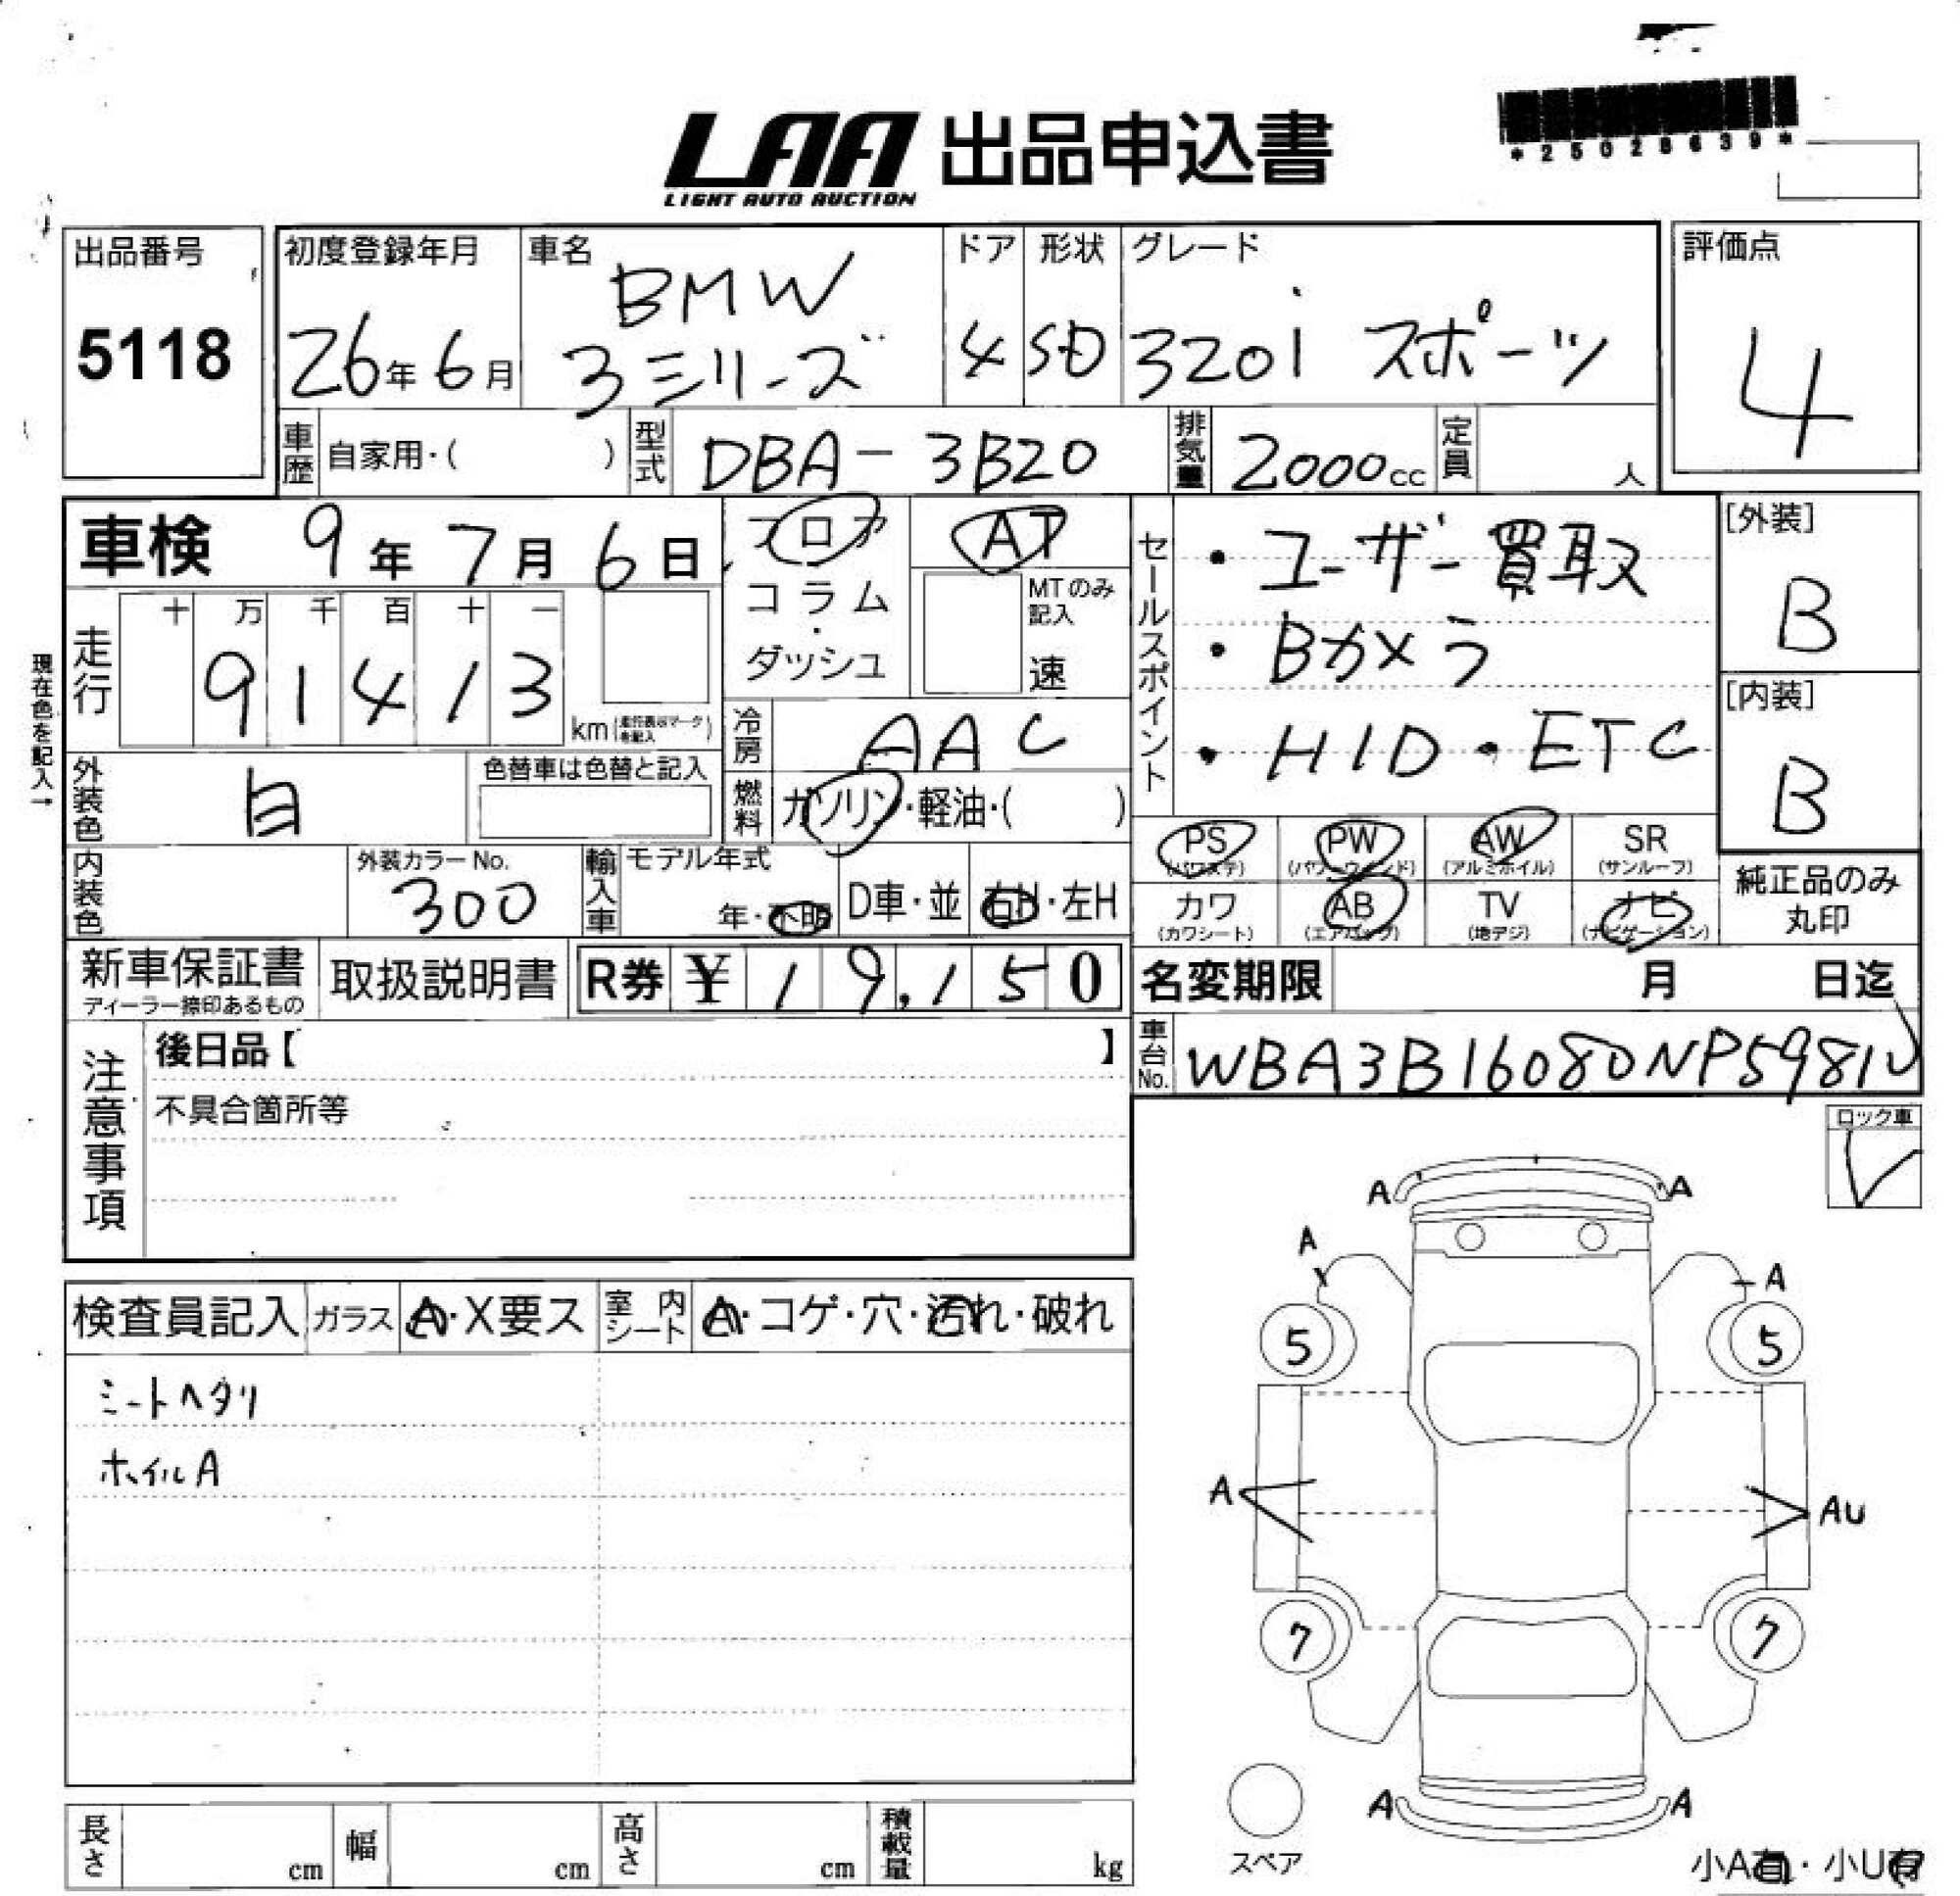 *25028639*
LAA 出品申込書
LIGHT AUTO AUCTION
出品番号
5118
初度登録年月
26年6月
車名
BMW
3シリーズ
ドア
4
形状
SD
グレード
320i スポーツ
評価点
4
車歴
自家用・( )
型式
DBA-3B20
排気量
2000cc
定員
人
車検 9年7月6日
フロア
コラム
・
ダッシュ
AT
MTのみ
記入
速
セールスポイント
・ユーザー買取
・Bカメラ
・HID・ETC
[外装]
B
[内装]
B
現在色を記入→
走行
十 万 千 百 十 一
9 1 4 1 3
km
冷房
AAC
外装色
白
色替車は色替と記入
燃料
ガソリン・軽油・( )
PS
(パワステ)
PW
(パワーウインド)
AW
(アルミホイル)
SR
(サンルーフ)
カワ
(カワシート)
AB
(エアバッグ)
TV
(地デジ)
ナビ
(ナビゲーション)
純正品のみ
丸印
内装色
外装カラーNo.
300
輸入車
モデル年式
年・不明
D車・並
右H・左H
新車保証書
ディーラー捺印あるもの
取扱説明書
R券 ¥19,150
名変期限 月 日迄
注意事項
後日品【 】
不具合箇所等
車台No.
WBA3B16080NP5981
ロック車
検査員記入
ガラス
A・X要ス
室内シート
A・コゲ・穴・汚れ・破れ
シートヘタリ
ホイルA
A A
A A
5 5
A AU
7 7
A A
スペア
長さ cm
幅 cm
高さ cm
積載量 kg
小A有・小U有